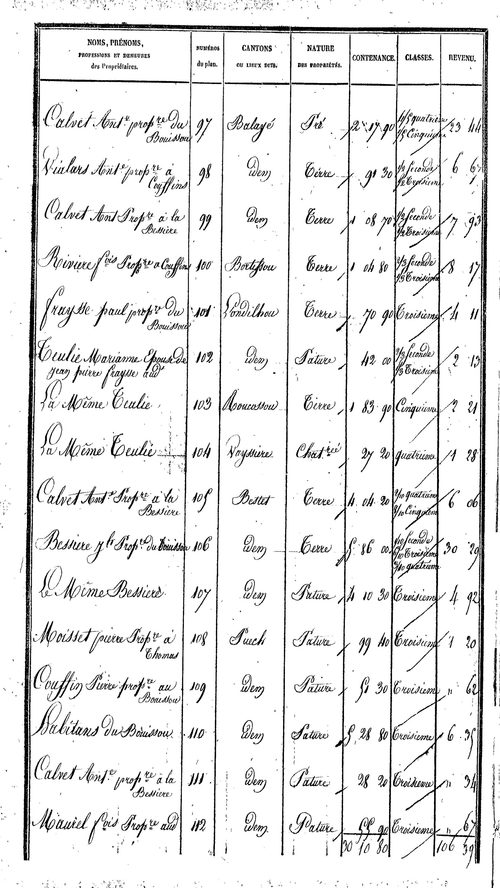 NOMS, PRÉNOMS, PROFESSIONS ET DEMEURES des Propriétaires. NUMÉROS du plan. CANTONS OU LIEUX DITS. NATURE DES PROPRIÉTÉS. CONTENANCE. CLASSES. REVENU.
Calvet Ant.e prop.re du Bouissou 97 Balayé Pré 2 17 90 quatrieme Cinquieme 23 44
Vialars Ant.e prop.re à Couffins 98 idem Terre 91 30 1/2 Seconde 1/2 Troisieme 6
Calvet Ant Prop.re à la Bessiere 99 idem Terre 1 08 70 1/2 Seconde 1/2 Troisieme 7 93
Riviere f.ois Prop.re à Couffins 100 Terre 1 04 80 Seconde Troisieme 8 17
fraysse paul prop.re du Bouissou 101 Londilhou Terre 70 90 Troisieme 4 11
Teulié Marianne Epouse de 102 idem Pature 42 00 Seconde Troisieme 2 13
jean pierre fraysse aud
La Même Teulié 103 Roucassou Terre 1 83 90 Cinquieme 2 21
La Même Teulié 104 Vayssiere 27 20 quatrieme 1 28
Calvet Ant.e Prop.re à la Bessière 105 Bestet Terre 4 04 20 quatrieme Cinquieme 6 06
Bessiere Prop.re du Bouissou 106 idem Terre 5 86 00 Seconde Troisieme quatrieme 30 29
Le Même Bessiere 107 idem Pature 4 10 30 Troisieme 4 92
Moisset pierre Prop.re à Thomas 108 Puech Pature 99 40 Troisieme 1 20
Couffin Pierre prop.re au Bouissou 109 idem Pature 51 30 Troisieme " 62
habitans du Bouissou 110 idem Pature 5 28 80 Troisieme 6 35
Calvet Ant.e prop.re à la Bessiere 111 idem Pature 28 20 Troisieme " 34
Mauriel f.ois Prop.re aud 112 idem Pature 55 90 Troisieme " 67
30 10 80 106 39